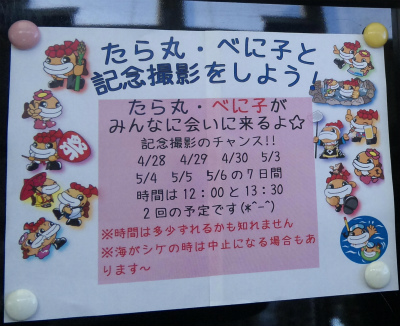 たら丸・べに子と
記念撮影をしよう！
たら丸・べに子が
みんなに会いに来るよ☆
記念撮影のチャンス!!
4/28 4/29 4/30 5/3
5/4 5/5 5/6の7日間
時間は12:00と13:30
2回の予定です(*^-^)
※時間は多少ずれるかも知れません
※海がシケの時は中止になる場合もあ
ります〜